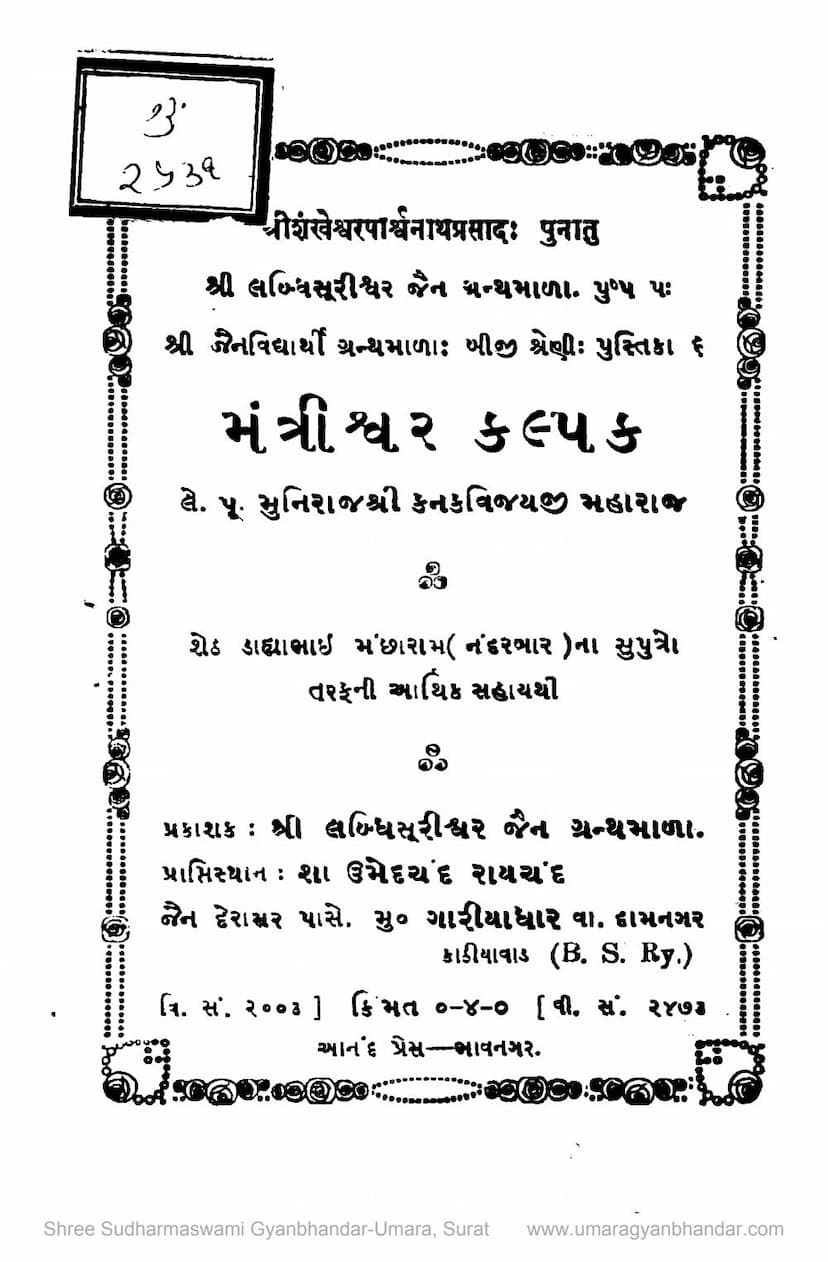 ૨૫૩૧
श्रीशंखेश्वरपार्श्वनाथप्रसादः पुनातु
શ્રી લબ્ધિસૂરીશ્વર જૈન ગ્રન્થમાળા. પુષ્પ ૫ઃ
શ્રી જૈનવિદ્યાર્થી ગ્રન્થમાળાઃ બીજી શ્રેણીઃ પુસ્તિકા ૬
મંત્રીશ્વર કલ્પક
લે. પૂ. મુનિરાજશ્રી કનકવિજયજી મહારાજ
શેઠ ડાહ્યાભાઈ મંછારામ( નંદરબાર )ના સુપુત્રો
તરફની આર્થિક સહાયથી
પ્રકાશક : શ્રી લબ્ધિસૂરીશ્વર જૈન ગ્રન્થમાળા.
પ્રાપ્તિસ્થાન : શા ઉમેદચંદ રાયચંદ
જૈન દેરાસર પાસે. મુ૦ ગારીયાધાર વા. દામનગર
કાઠીયાવાડ (B. S. Ry.)
ત્રિ. સં. ૨૦૦૩ ] કિંમત ૦-૪-૦ [ વી. સં. ૨૪૭૩
આનંદ પ્રેસ—ભાવનગર.
Shree Sudharmaswami Gyanbhandar-Umara, Surat www.umaragyanbhandar.com